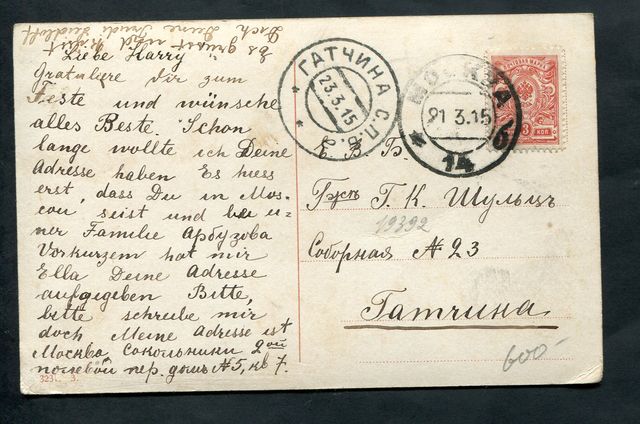 Es grüsst und küsst
Dich Deine Trudi
Liebe Harry
Gratulire Dir zum
Feste und wünsche
alles Beste. Schon
lange wollte ich Deine
Adresse haben Es hiess
erst, dass Du in Mos-
cou seist und bei u-
ner Familie Арбузова
Vorkurzem hat mir
Ella Deine Adresse
aufgegeben Bitte,
bitte schreibe mir
doch Meine Adresse ist
Москва, Сокольники 2ой
полевой пер. домъ №5, кв 7.
323
ГАТЧИНА С.П.Б.
23.3.15
МОСКВА
21 3.15
14
6
ПОЧТОВАЯ МАРКА
3 КОП
Е. В. Б.
Г. К. Шульцъ
19392
Соборная №23
Гатчина
600-